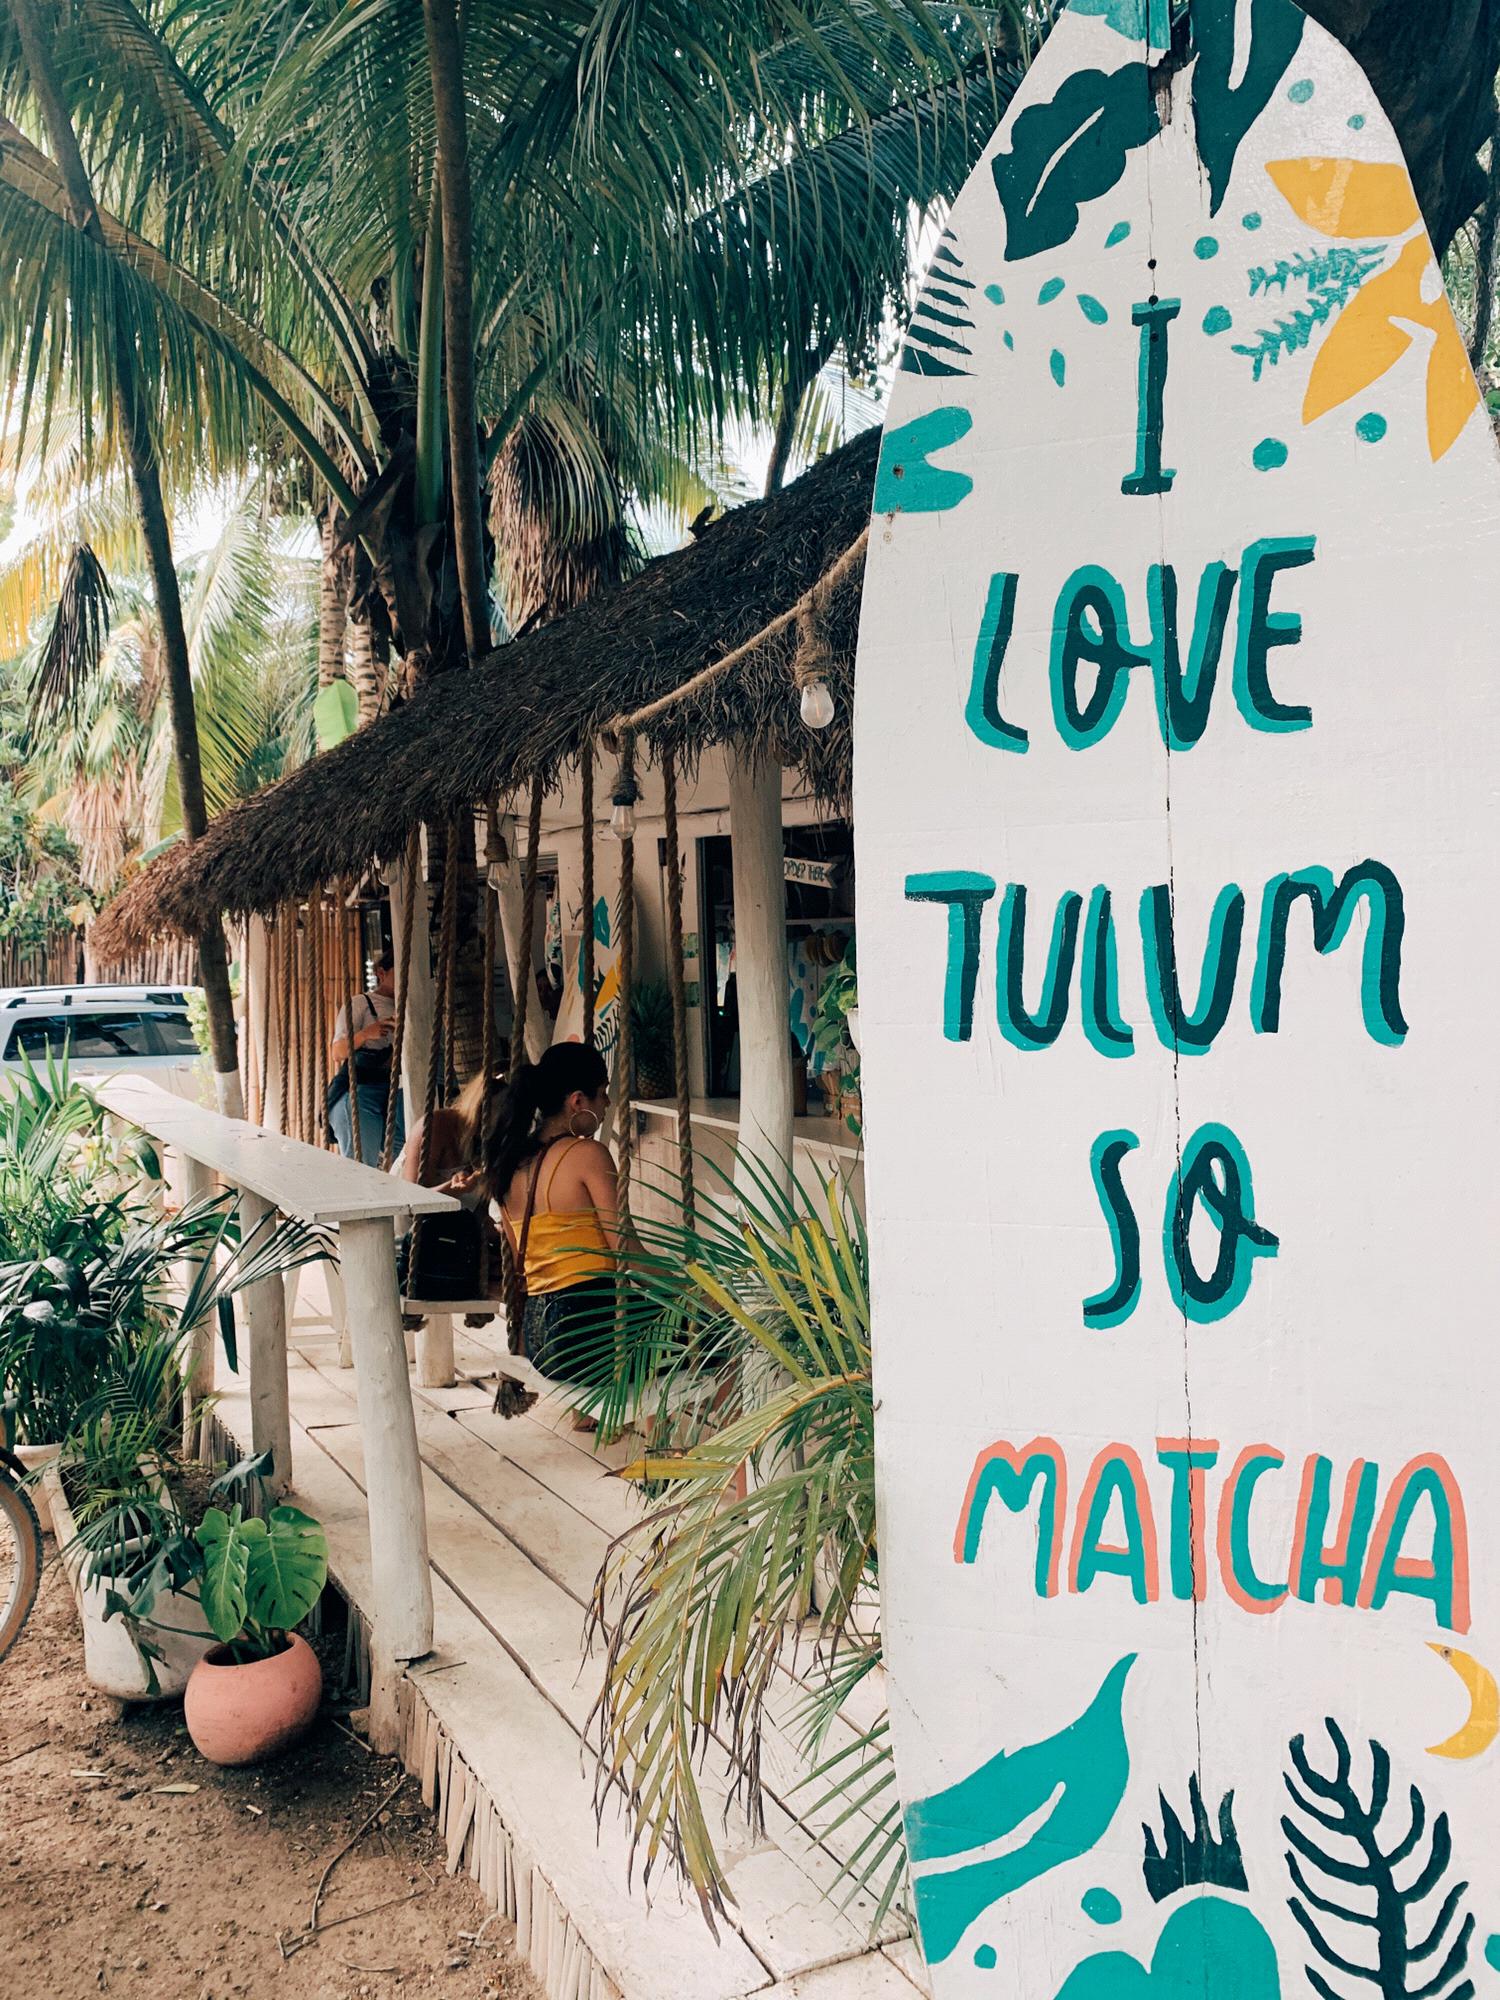 I
LOVE
TULUM
SO
MATCHA
ORDER HERE